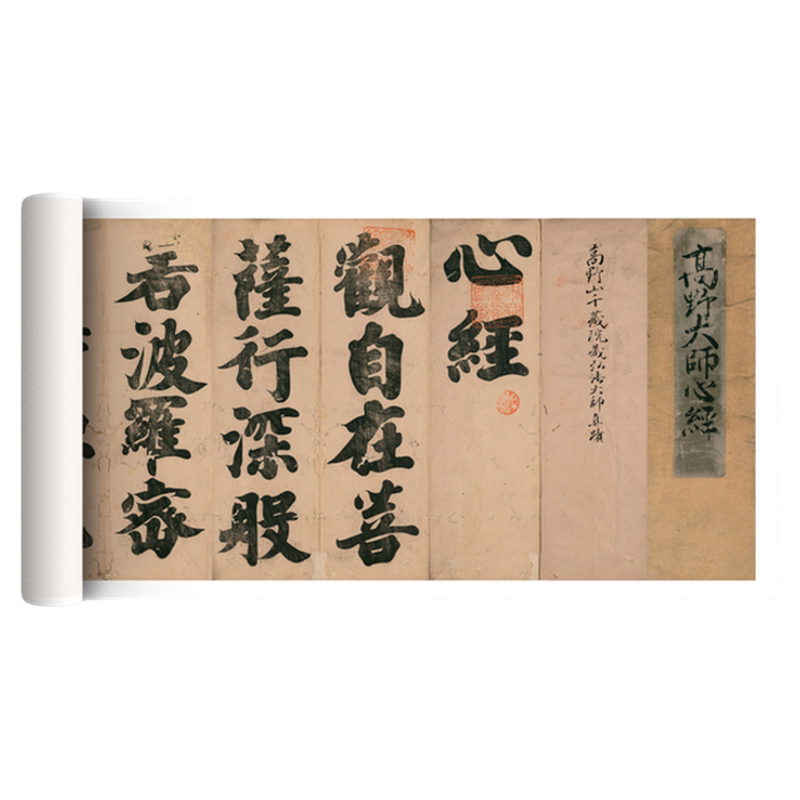 高野大師心經
高野山千蔵院蔵弘法大師真蹟
心經
觀自在菩
薩行深般
若波羅蜜